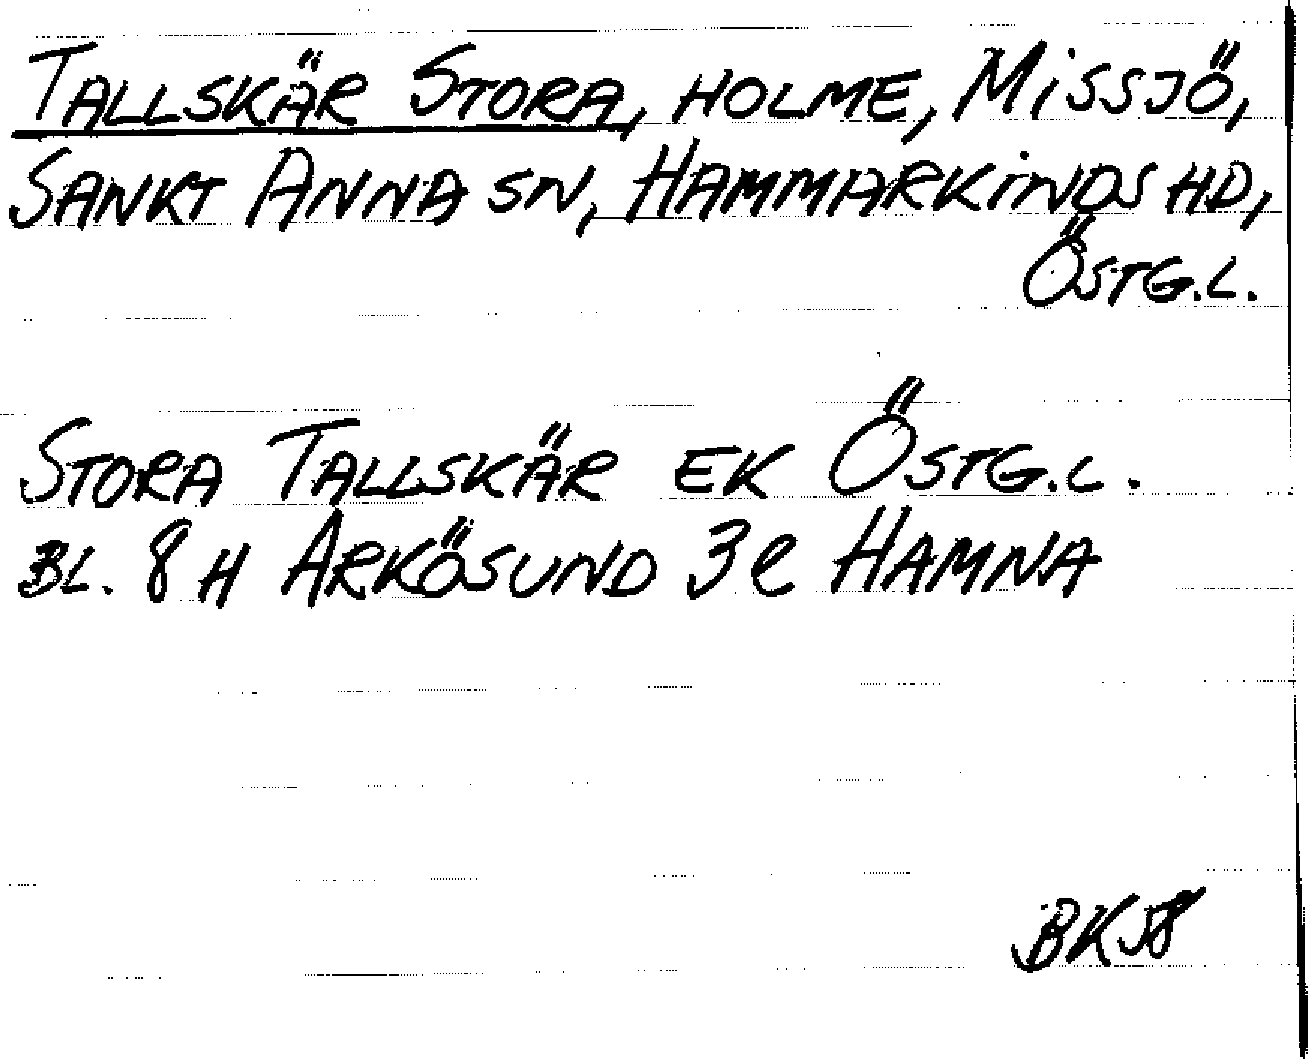 TALLSKÄR STORA, HOLME, MISSJÖ,
SANKT ANNA SN, HAMMARKINDS HD,
ÖSTG.L.
STORA TALLSKÄR EK ÖSTG.L.
BL. 8 H ARKÖSUND 3 e HAMNA